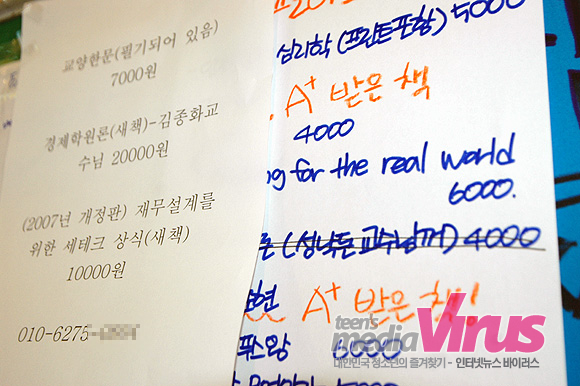 교양한문(필기되어 있음)
7000원
경제학원론(새책)-김종화교
수님 20000원
(2007년 개정판) 재무설계를
위한 세테크 상식(새책)
10000원
010-6275
심리학 (프린트포함) 5000
A+ 받은 책
4000
for the real world
6000.
(성낙돈 교수님꺼) 4000
A+ 받은 책임
6000
teen's
mediaVirus
대한민국 청소년의 즐겨찾기 - 인터넷뉴스 바이러스